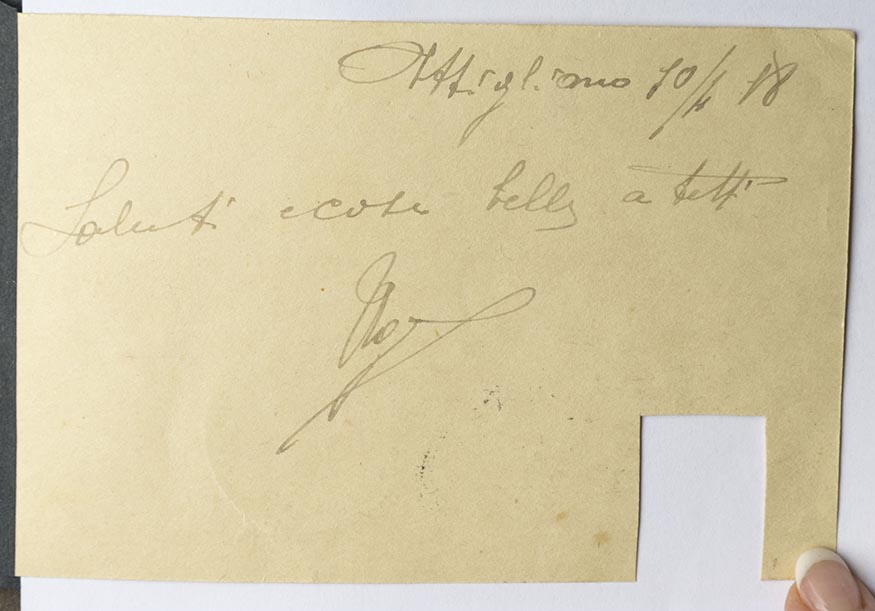 Attigliano 10/4 18
Saluti e cose belle a tutti